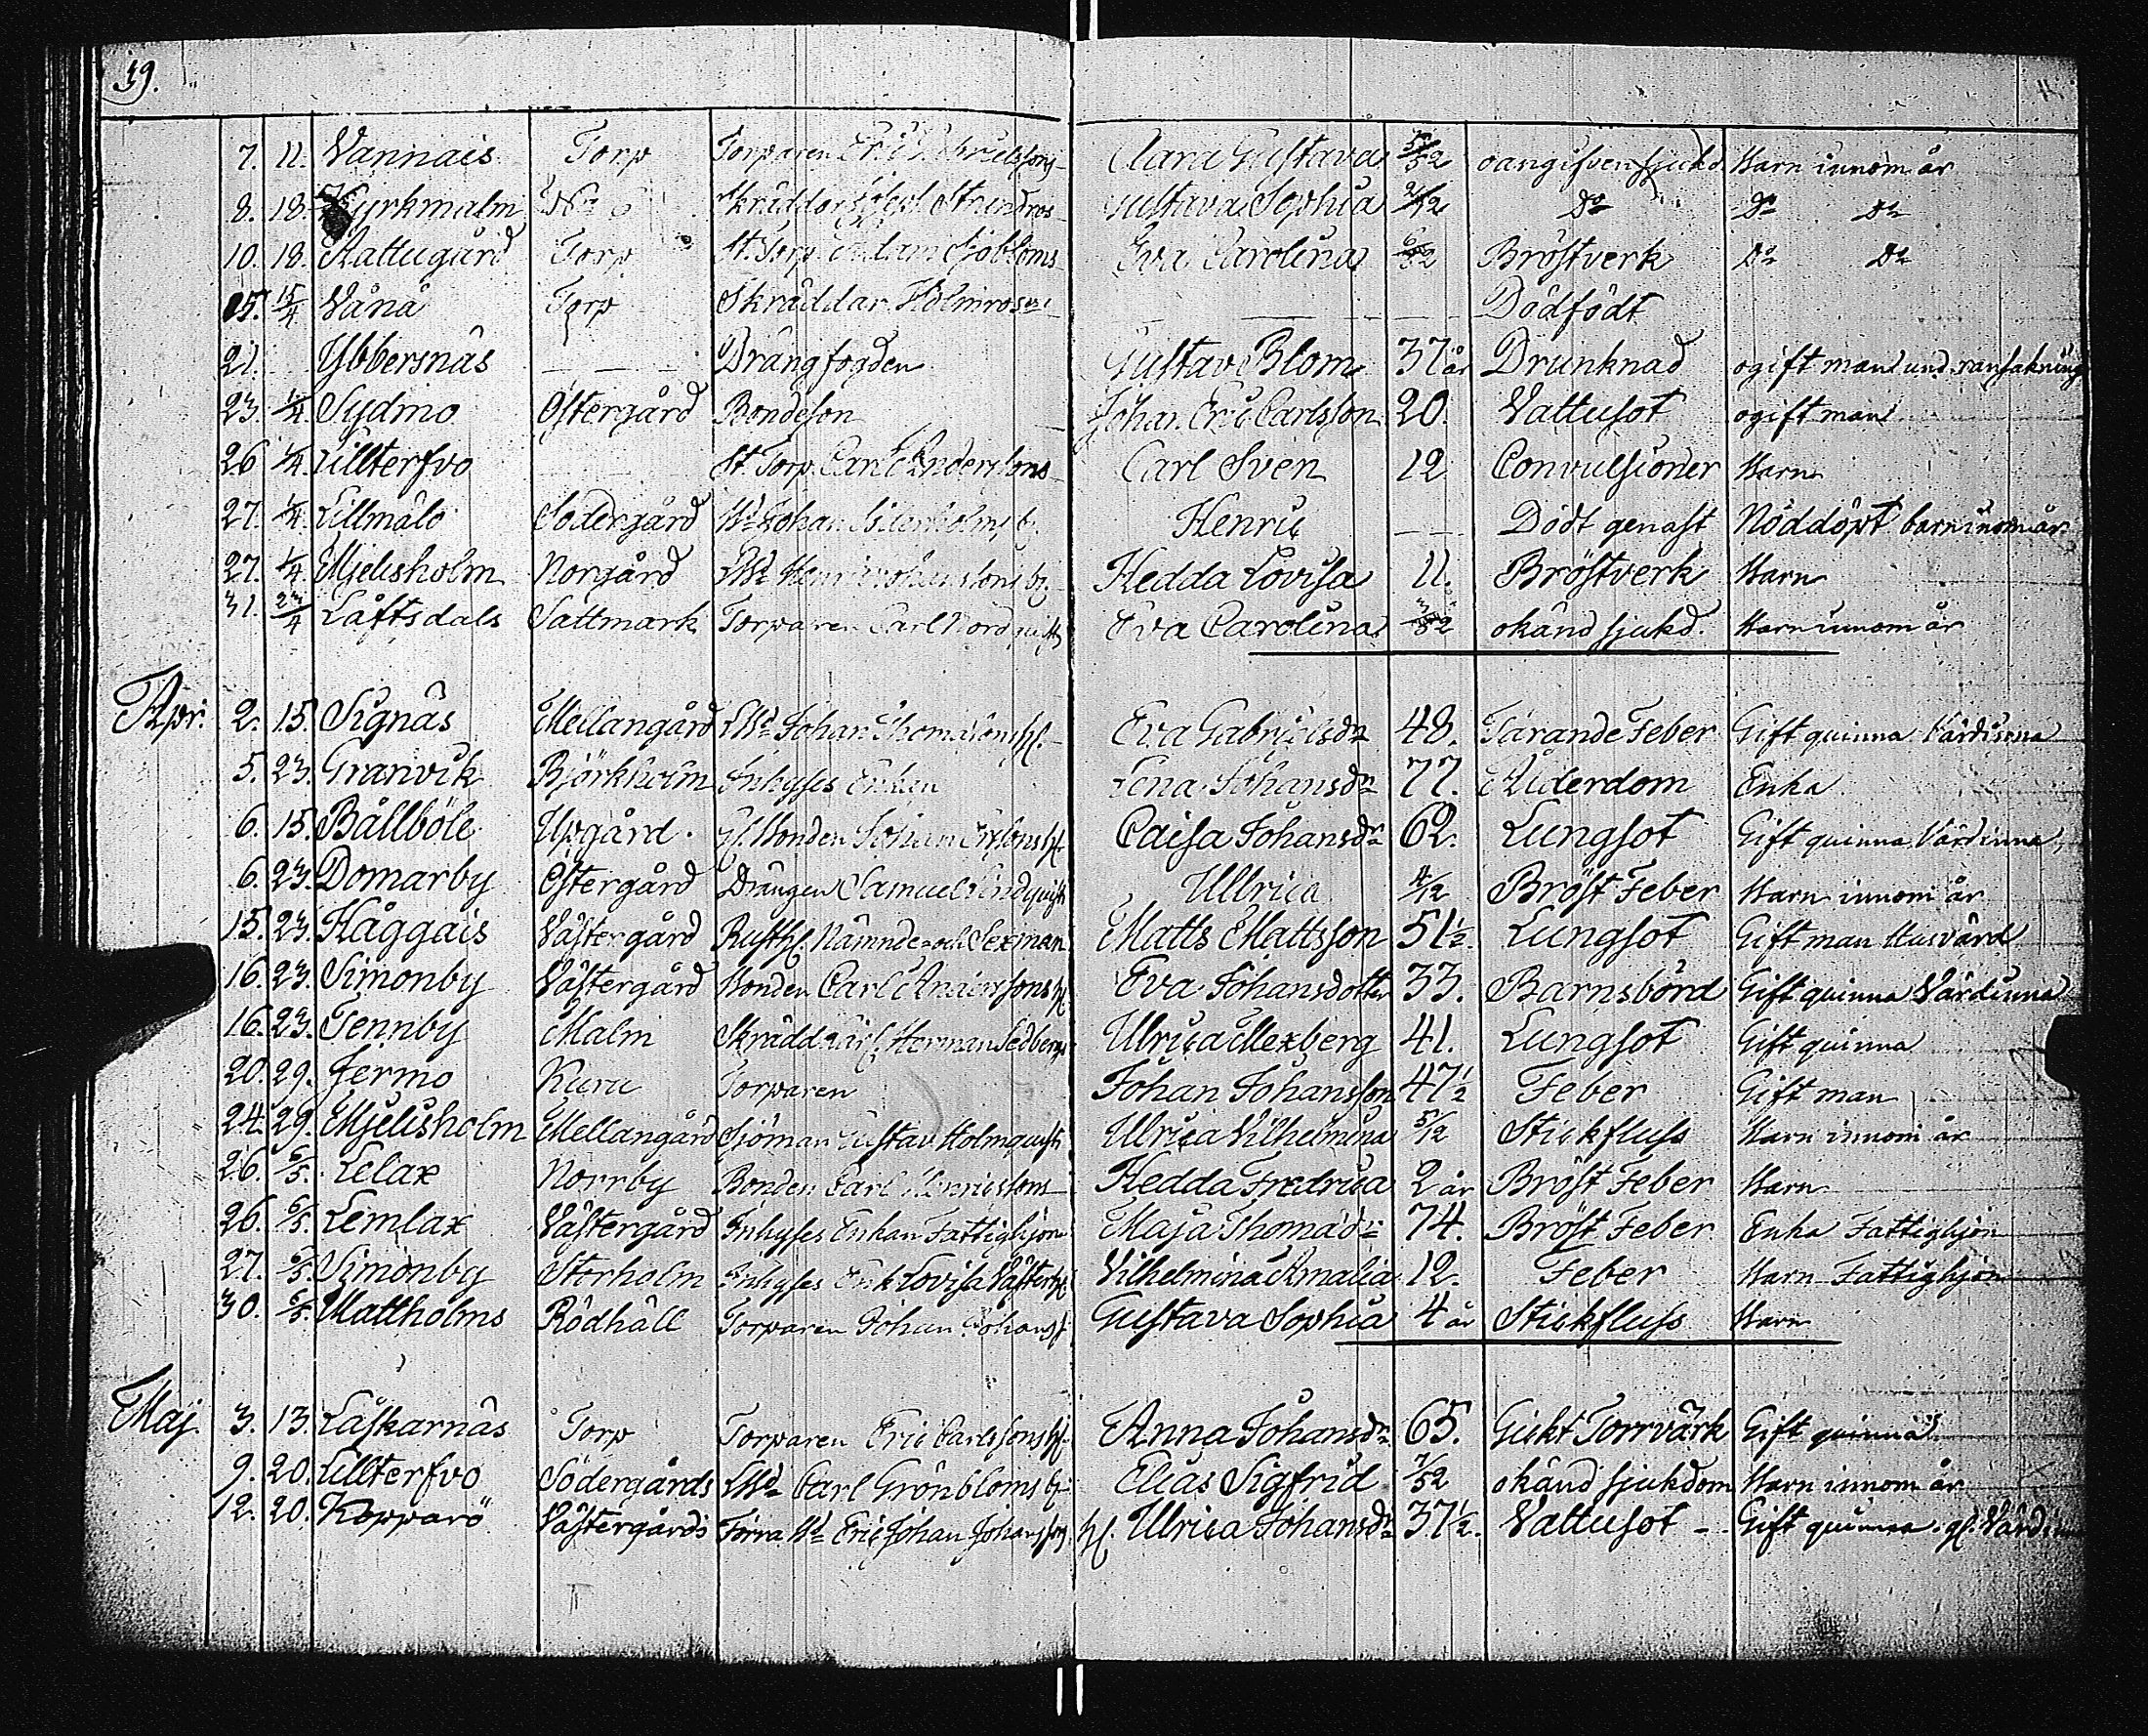 59.
7. 11. Vannais Torp Torparen Clara Gustava 5/52 oangifven sjukd. Barn innom år
8. 18. Kyrkmalm No 6 Skräddar Gustava Sophia 2/12 Do Do Do
10. 18. Kattugård Torp St. Torp. Adam Sjöbloms Eva Carolina 6/52 Bröstverk Do Do
15. 15/4 Vånå Torp Skräddar Holmros — — — — Dödfödt
21. Ybbersnäs — — Drängfogden Gustav Blom 37 år Drunknad ogift man und. ransakning
23. 1/4 Sydmo Östergård Bondeson Johan Eric Carlsson 20. Vattusot ogift man
26 1/4 Lillterfvo — — St. Torp. Carl Anderssons Carl Sven 12 Convulsioner Barn
27. 1/4. Lillmälö Södergård Johan Söderholms b. Henric — — Dödt genast Nöddöpt barn inom år
27. 1/4. Mjelisholm Norgård Lbd Henric Johanssons b. Hedda Lovisa 11. Bröstverk Barn
31. 23/4 Låftsdals Sattmark Torparen Carl Nordqvists Eva Carolina 3/52 okänd sjukd. Barn innom år
Apr. 2. 15. Signäs Mellangård Lbd Johan Thomassons h. Eva Gabrielsdr 48. Tärande Feber Gift quinna Värdinna
5. 23. Granvik Björkholm Inhyses Enkan Lena Johansdr 77. Ålderdom Enka
6. 15. Bållböle Uppgård. Gl. Bonden Johan Ersons h. Caisa Johansdr 62. Lungsot Gift quinna Värdinna
6. 23. Domarby Östergård Drängen Samuel Lindqvists Ullrica 4/12 Bröst Feber Barn innom år
15. 23. Haggais Västergård Rusth. Nämnde- och Sexman Matts Mattsson 51 1/2. Lungsot Gift man Husvärd
16. 23. Simonby Västergård Bonden Carl Anderssons h. Eva Johansdotter 33. Barnsbörd Gift quinna Värdinna
16. 23. Tennby Malm Skräddaren Herman Sedbergs Ulrica Mexberg 41. Lungsot Gift quinna
20. 29. Jermo Kuru Torparen Johan Johansson 47 1/2 Feber Gift man
24. 29. Mjelisholm Mellangård Sjöman Gustav Holmqvists Ulrica Vilhelmina 5/12 Stickfluss Barn innom år
26. 6/5. Lelax Norrby Bonden Carl Henricssons Hedda Fredrica 2 år Bröst Feber Barn
26. 6/5. Lemlax Västergård Inhyses Enkan Fattighjon Maja Thomasdr 74. Bröst Feber Enka Fattighjon
27. 6/5. Simonby Storholm Inhyses Enk. Lovisa Vilhelmina Amalia 12. Feber Barn Fattighjon
30. 6/5. Mattholms Rödhäll Torparen Johan Johanss. Gustava Sophia 4 år Stickfluss Barn
Maj. 3. 13. Laskarnäs Torp Torparen Eric Carlssons h. Anna Johansdr 65. Gickt Torrvärk Gift quinna
9. 20. Lillterfvo Södergårds Lbd Carl Grönbloms b. Elias Sigfrid 7/52 okänd sjukdom Barn innom år
12. 20. Kopparö Västergårds Förra Bd Eric Johan Johanssons h. Ulrica Johansdr 37 1/2. Vattusot — Gift quinna gl. Värd.